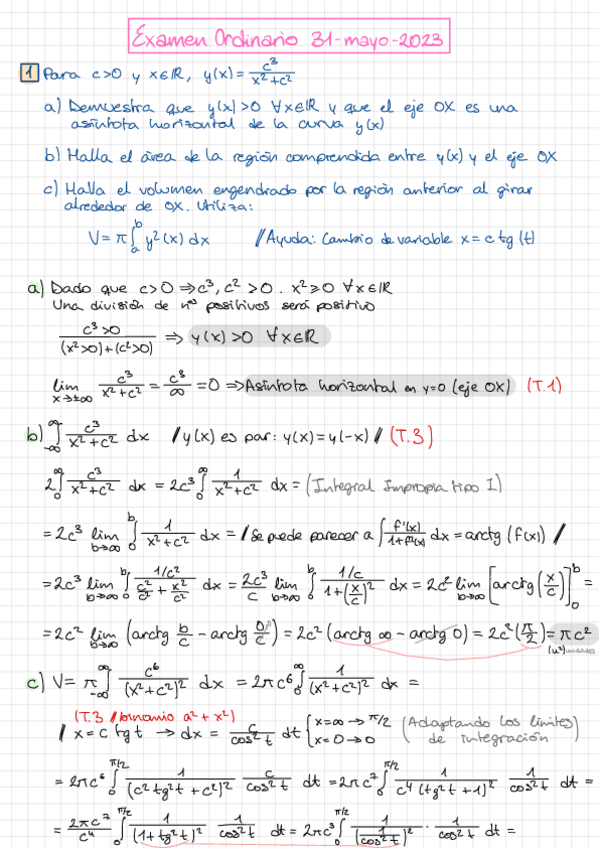 Examen Ordinario 31-mayo-2023
1 Para c>0 y x∈ℝ, y(x) = c³/(x²+c²)
a) Demuestra que y(x)>0 ∀x∈ℝ y que el eje OX es una
asíntota horizontal de la curva y(x)
b) Halla el área de la región comprendida entre y(x) y el eje OX
c) Halla el volumen engendrado por la región anterior al girar
alrededor de OX. Utiliza:
V = π∫ₐᵇ y²(x) dx // Ayuda: Cambio de variable x = c tg (t)
a) Dado que c>0 ⇒ c³, c² >0. x²≥0 ∀x∈ℝ
Una división de nºs positivos será positivo
c³>0/((x²>0)+(c²>0)) ⇒ y(x)>0 ∀x∈ℝ
lim x→±∞ c³/(x²+c²) = c³/∞ = 0 ⇒ Asíntota horizontal en y=0 (eje OX) (T.1)
b) ∫₋∞^∞ c³/(x²+c²) dx / y(x) es par: y(x)=y(-x) / (T.3)
2∫₀^∞ c³/(x²+c²) dx = 2c³∫₀^∞ 1/(x²+c²) dx = (Integral Impropia tipo I)
= 2c³ lim b→∞ ∫₀ᵇ 1/(x²+c²) dx = / Se puede parecer a ∫ f'(x)/(1+f²(x)) dx = arctg (f(x)) /
= 2c³ lim b→∞ ∫₀ᵇ (1/c²)/(c²/c² + x²/c²) dx = 2c³/c lim b→∞ ∫₀ᵇ (1/c)/(1+(x/c)²) dx = 2c² lim b→∞ [arctg(x/c)]₀ᵇ =
= 2c² lim b→∞ (arctg b/c - arctg 0/c) = 2c² (arctg ∞ - arctg 0) = 2c² (π/2) = πc²
(u²) unidades
c) V = π∫₋∞^∞ c⁶/(x²+c²)² dx = 2πc⁶∫₀^∞ 1/(x²+c²)² dx =
(T.3 / binomio a²+x²)
/ x = c tg t → dx = c/cos²t dt { x=∞ → π/2 (Adaptando los límites)
x=0 → 0 de integración
= 2πc⁶∫₀^(π/2) 1/(c²tg²t + c²)² c/cos²t dt = 2πc⁷∫₀^(π/2) 1/(c⁴(tg²t+1)²) 1/cos²t dt =
= 2πc⁷/c⁴ ∫₀^(π/2) 1/(1+tg²t)² 1/cos²t dt = 2πc³∫₀^(π/2) 1/(1/cos²t)² · 1/cos²t dt =